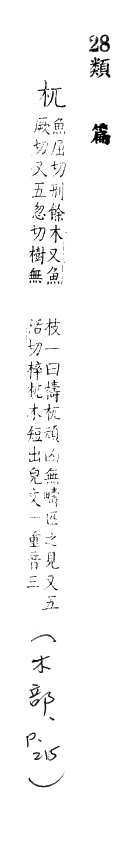 28
類篇
杌
魚屈切刑餘木又魚
厥切又五忽切樹無
枝一曰檮杌頑凶無疇匹之見又五
活切椊杌木短出皃文一重音三
(木部、p.215)